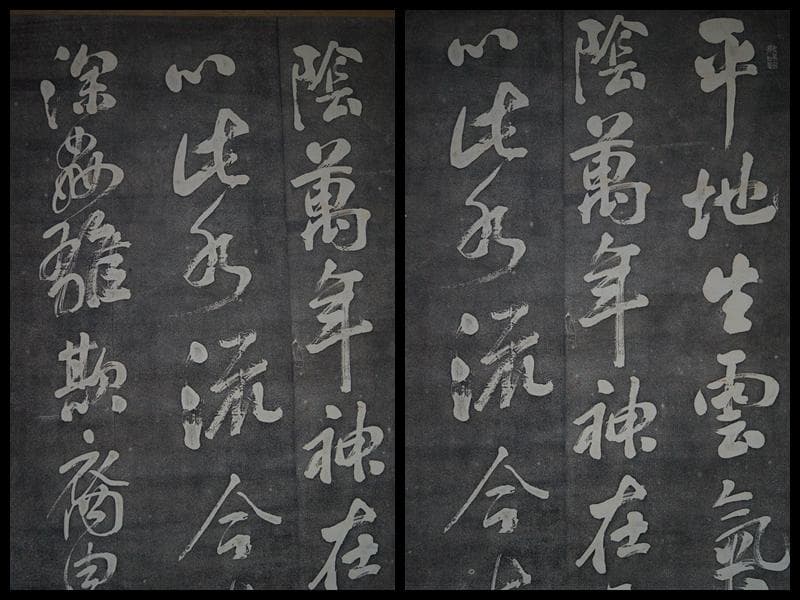 平地生雲氣
陰萬年神在
以此水流合
陰萬年神在
以此水流合
深欺裔